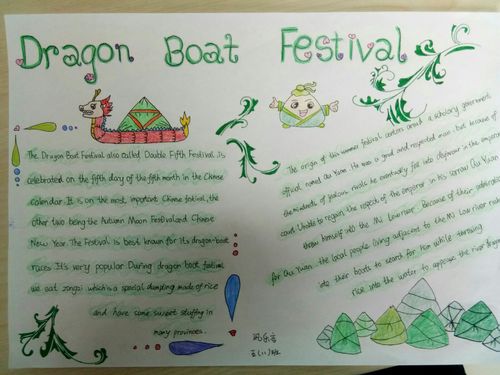 Dragon Boat Festival
The Dragon Boat Festival, also called Double Fifth Festival, is
celebrated on the fifth day of the fifth month in the Chinese
calendar. It is on the most important Chinese fetival, the
other two being the Autumn Moon Festival and Chinese
New Year. The Festival is best known for its dragon-boat
races It's very popular. During dragon boat festival
we eat zongzi which is a special dumpling made of rice
and have some sweet stuffing in
many provinces.
The origin of this summer festival centers around a scholarly government
official named Qu Yuan. He was a good and respected man, but because of
the misdeeds of jealous rivals he eventually fell into disfavour in the emperor's
court. Unable to regain the respect of the emperor, in his sorrow Qu Yuan
threw himself into the Mi Low river. Because of their admiration
for Qu Yuan, the local people living adjacent to the Mi Low river rushed
into their boats to search for him while throwing
rice into the water to appease the river